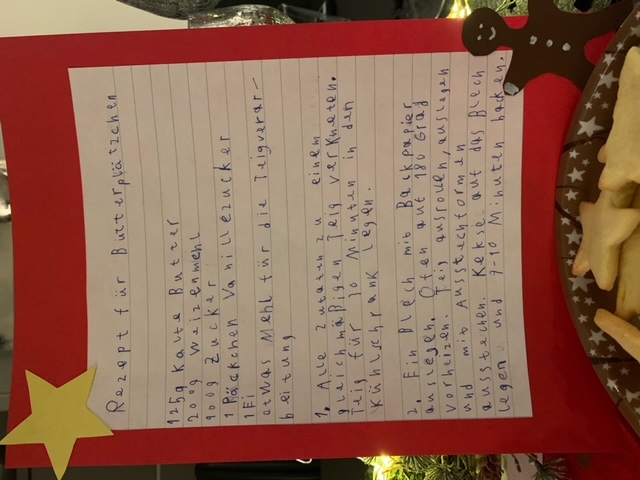 Rezept für Butterplätzchen
125g Kalte Butter
200g Weizenmehl
100g Zucker
1 Päckchen Vanillezucker
1 Ei
etwas Mehl für die Teigverar-
beitung
1. Alle Zutaten zu einem
gleichmäßigen Teig verkneten.
Teig für 30 Minuten in den
Kühlschrank legen.
2. Ein Blech mit Backpapier
auslegen. Ofen auf 180 Grad
vorheizen. Teig ausrollen, auslegen
und mit Ausstechformen
ausstechen. Kekse auf das Blech
legen und 7-10 Minuten backen.